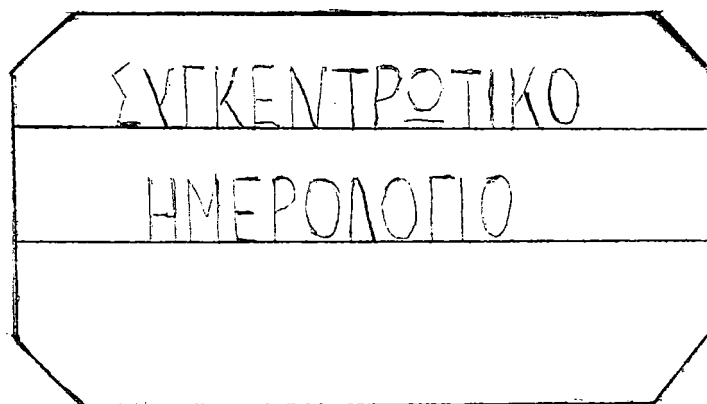 ΣΥΓΚΕΝΤΡΩΤΙΚΟ
ΗΜΕΡΟΛΟΓΙΟ